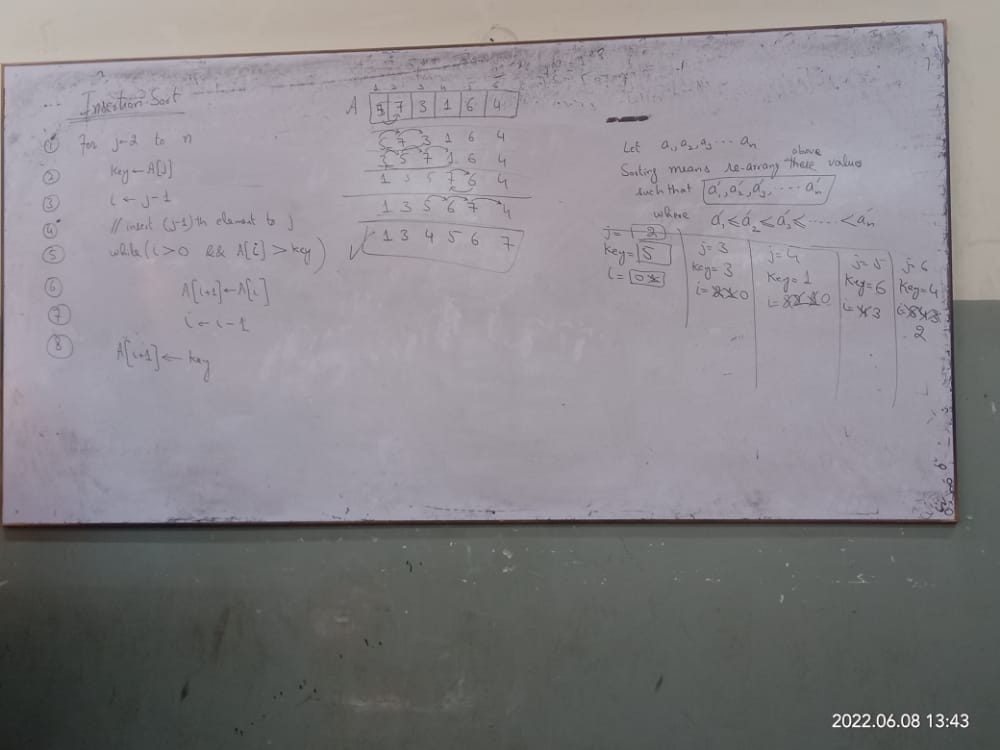 Insertion Sort
① for j=2 to n
② key ← A[j]
③ i ← j-1
④ // insert (j-1)th element to j
⑤ while (i>0 && A[i] > key)
⑥ A[i+1] ← A[i]
⑦ i ← i-1
⑧ A[i+1] ← key
1 2 3 4 5 6
A 5 7 3 1 6 4
5 7 3 1 6 4
3 5 7 1 6 4
1 3 5 7 6 4
1 3 5 6 7 4
1 3 4 5 6 7
Let a₁, a₂, a₃ ... aₙ
above
Sorting means re-arrang these values
such that a₁', a₂', a₃', .... aₙ'
where a₁' ≤ a₂' ≤ a₃' ≤ ...... < aₙ'
j= 2
key= 5
i= 0
j= 3
key= 3
i= 0
j= 4
key= 1
i= 0
j= 5
key= 6
i= 3
j= 6
key= 4
i=
2
2022.06.08 13:43